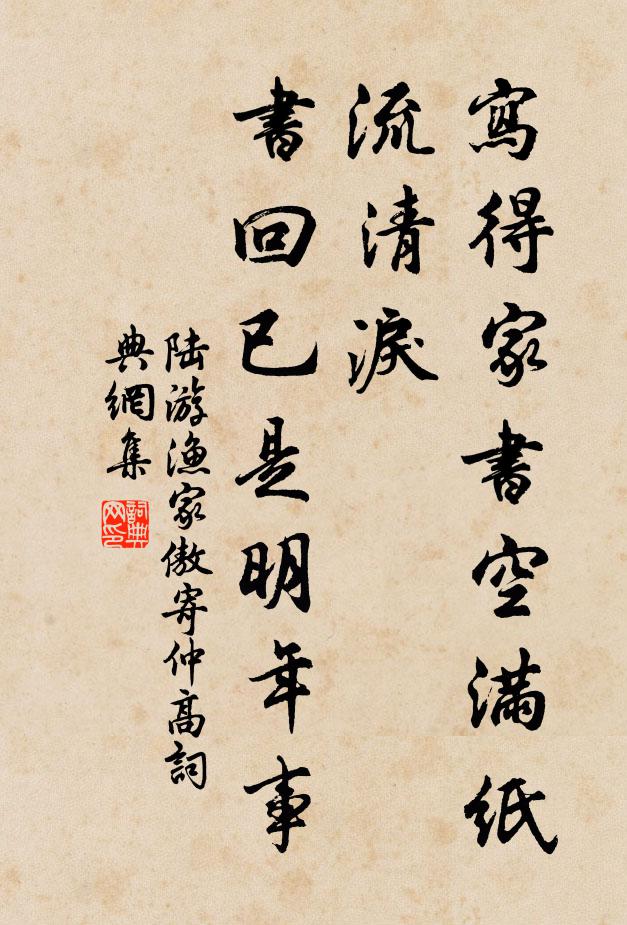 寫得家書空滿紙
流清淚
書回已是明年事
陸游漁家傲寄仲高詞
典網集
詞典网印